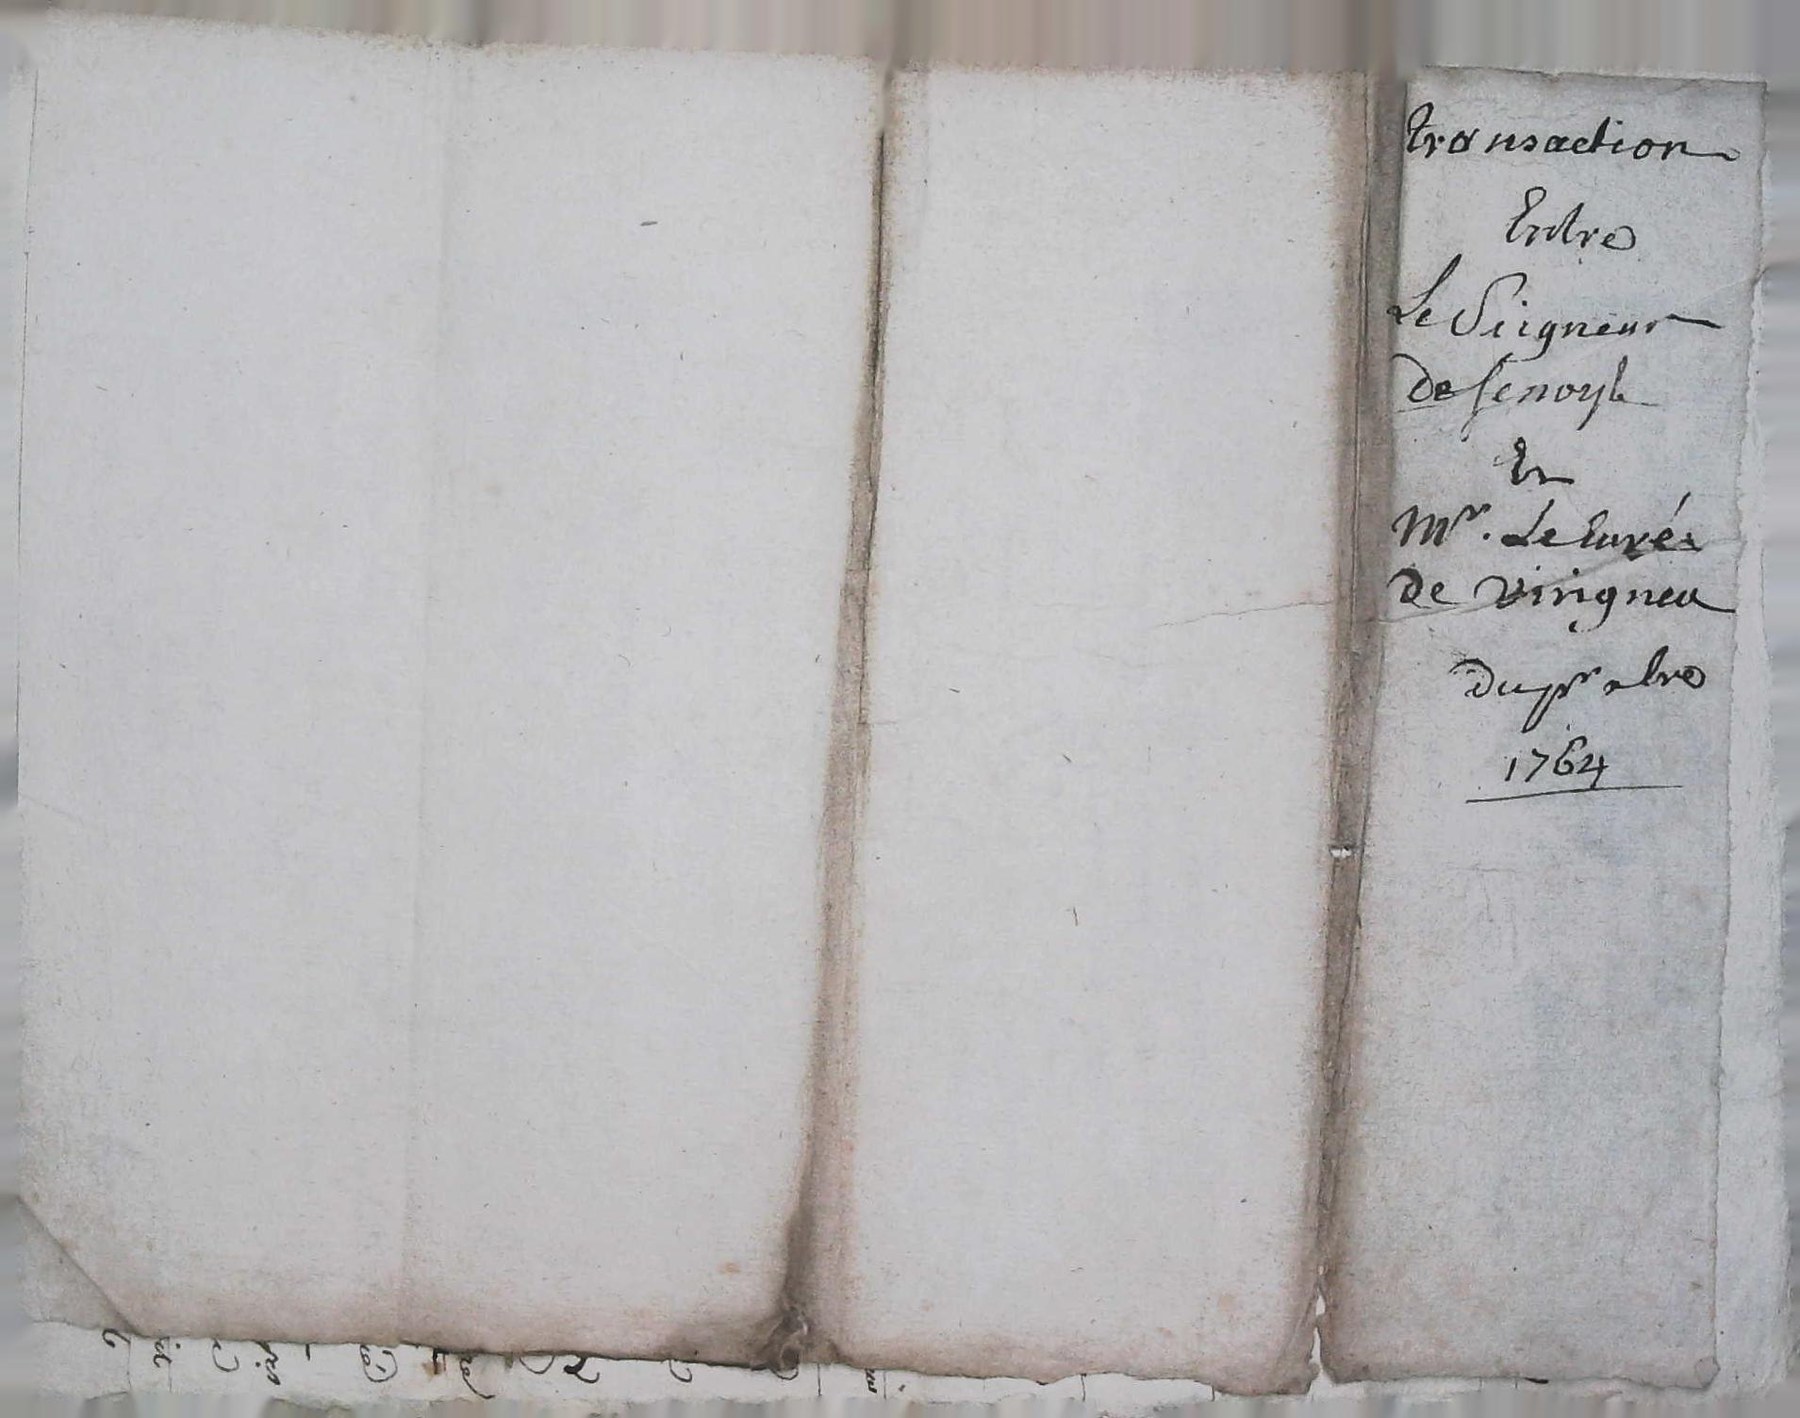 transaction
Entre
Le Seigneur
de senoyl
Et
Mr. Le Curé
de Virigneu
du pr
1764